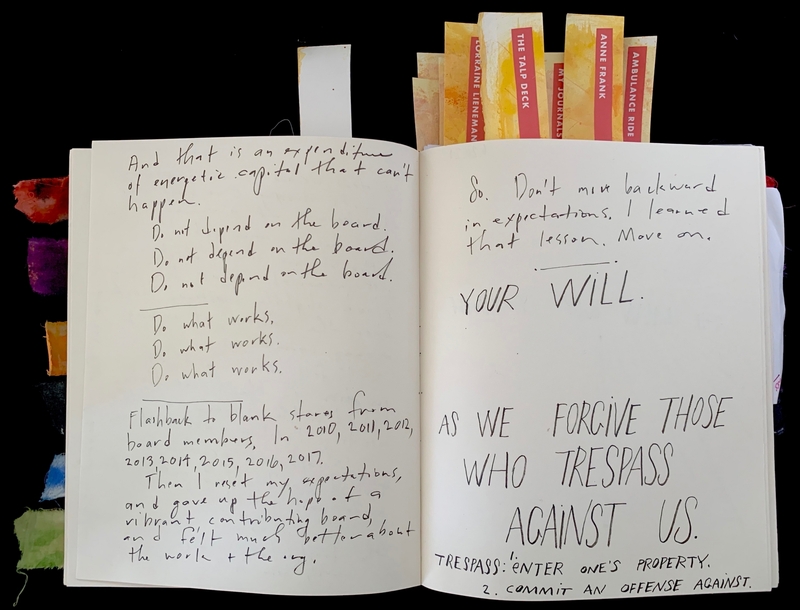 LORRAINE LIENEMAN
THE TALP DECK
MY JOURNALS
ANNE FRANK
AMBULANCE RIDE
And that is an expenditure
of energetic capital that can't
happen.
Do not depend on the board.
Do not depend on the board.
Do not depend on the board.
Do what works.
Do what works.
Do what works.
Flashback to blank stares from
board members, In 2010, 2011, 2012,
2013, 2014, 2015, 2016, 2017.
Then I reset my expectations,
and gave up the hope of a
vibrant contributing board,
and felt much better about
the work + the org.
So. Don't move backward
in expectations. I learned
that lesson. Move on.
YOUR WILL.
AS WE FORGIVE THOSE
WHO TRESPASS
AGAINST US.
TRESPASS: 1. ENTER ONE'S PROPERTY.
2. COMMIT AN OFFENSE AGAINST.